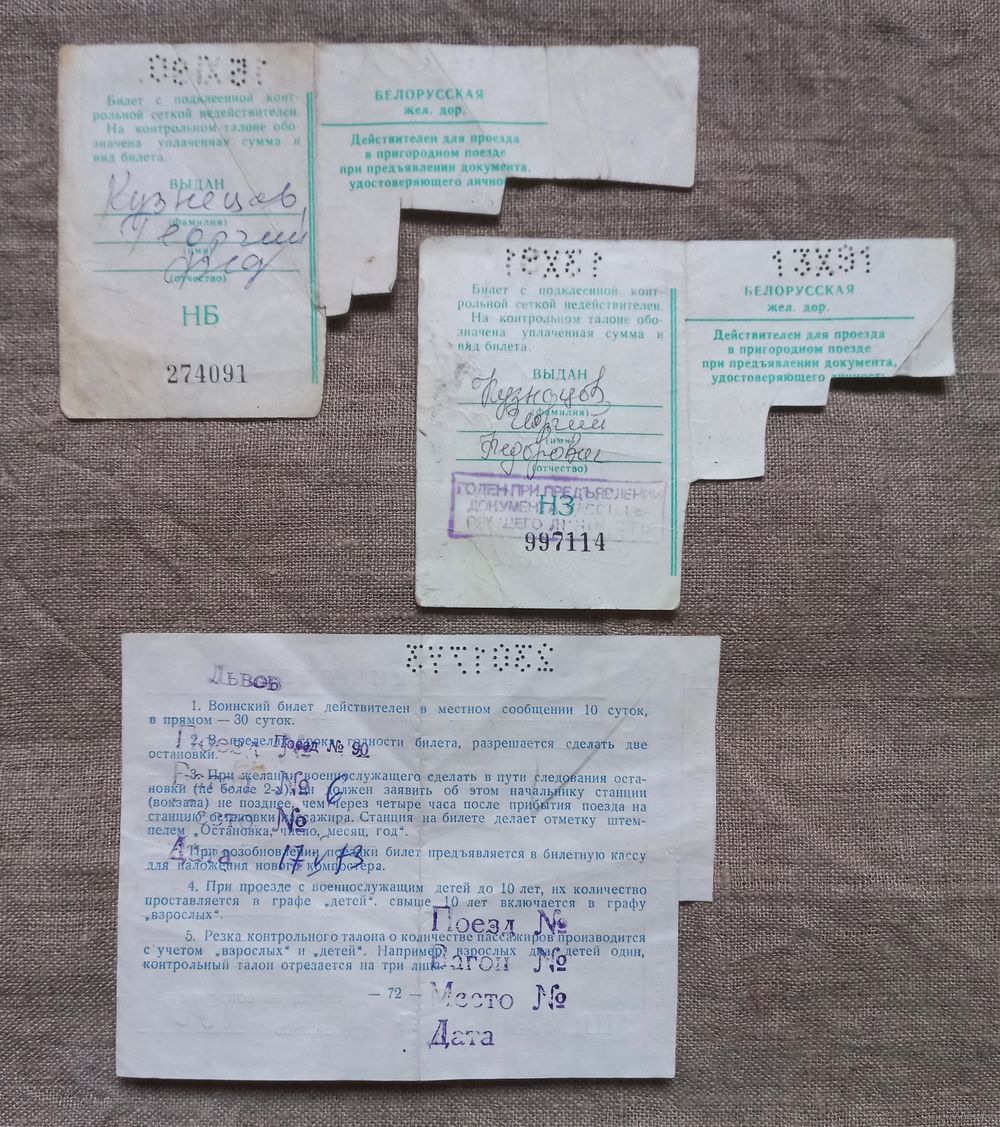 Билет с подклеенной конт-
рольной сеткой недействителен.
На контрольном талоне обо-
значена уплаченная сумма и
вид билета.
ВЫДАН
Кузнецов
(фамилия)
Георгий
(имя)
(отчество)
НБ
274091
БЕЛОРУССКАЯ
жел. дор.
Действителен для проезда
в пригородном поезде
при предъявлении документа,
удостоверяющего личнос
13X91
Билет с подклеенной конт-
рольной сеткой недействителен.
На контрольном талоне обо-
значена уплаченная сумма и
вид билета.
ВЫДАН
Кузнецов
(фамилия)
Георгий
(имя)
Федорович
(отчество)
ГОДЕН ПРИ ПРЕДЪЯВЛЕНИИ
НЗ
997114
13X91
БЕЛОРУССКАЯ
жел. дор.
Действителен для проезда
в пригородном поезде
при предъявлении документа,
удостоверяющего личность
Львов
1. Воинский билет действителен в местном сообщении 10 суток,
в прямом — 30 суток.
2. В пределах срока годности билета, разрешается сделать две
остановки.
Поезд № 90
3. При желании военнослужащего сделать в пути следования оста-
новки (не более 2-х), он должен заявить об этом начальнику станции
(вокзала) не позднее, чем через четыре часа после прибытия поезда на
станцию остановки пассажира. Станция на билете делает отметку штем-
пелем „Остановка, число, месяц, год“.
№ 6
№
Дата 17 V 73
При возобновлении поездки билет предъявляется в билетную кассу
для наложения нового компостера.
4. При проезде с военнослужащим детей до 10 лет, их количество
проставляется в графе „детей“. свыше 10 лет включается в графу
„взрослых“.
5. Резка контрольного талона о количестве пассажиров производится
с учетом „взрослых“ и „детей“. Например, взрослых два, детей один,
контрольный талон отрезается на три
— 72 —
Поезд №
Вагон №
Место №
Дата